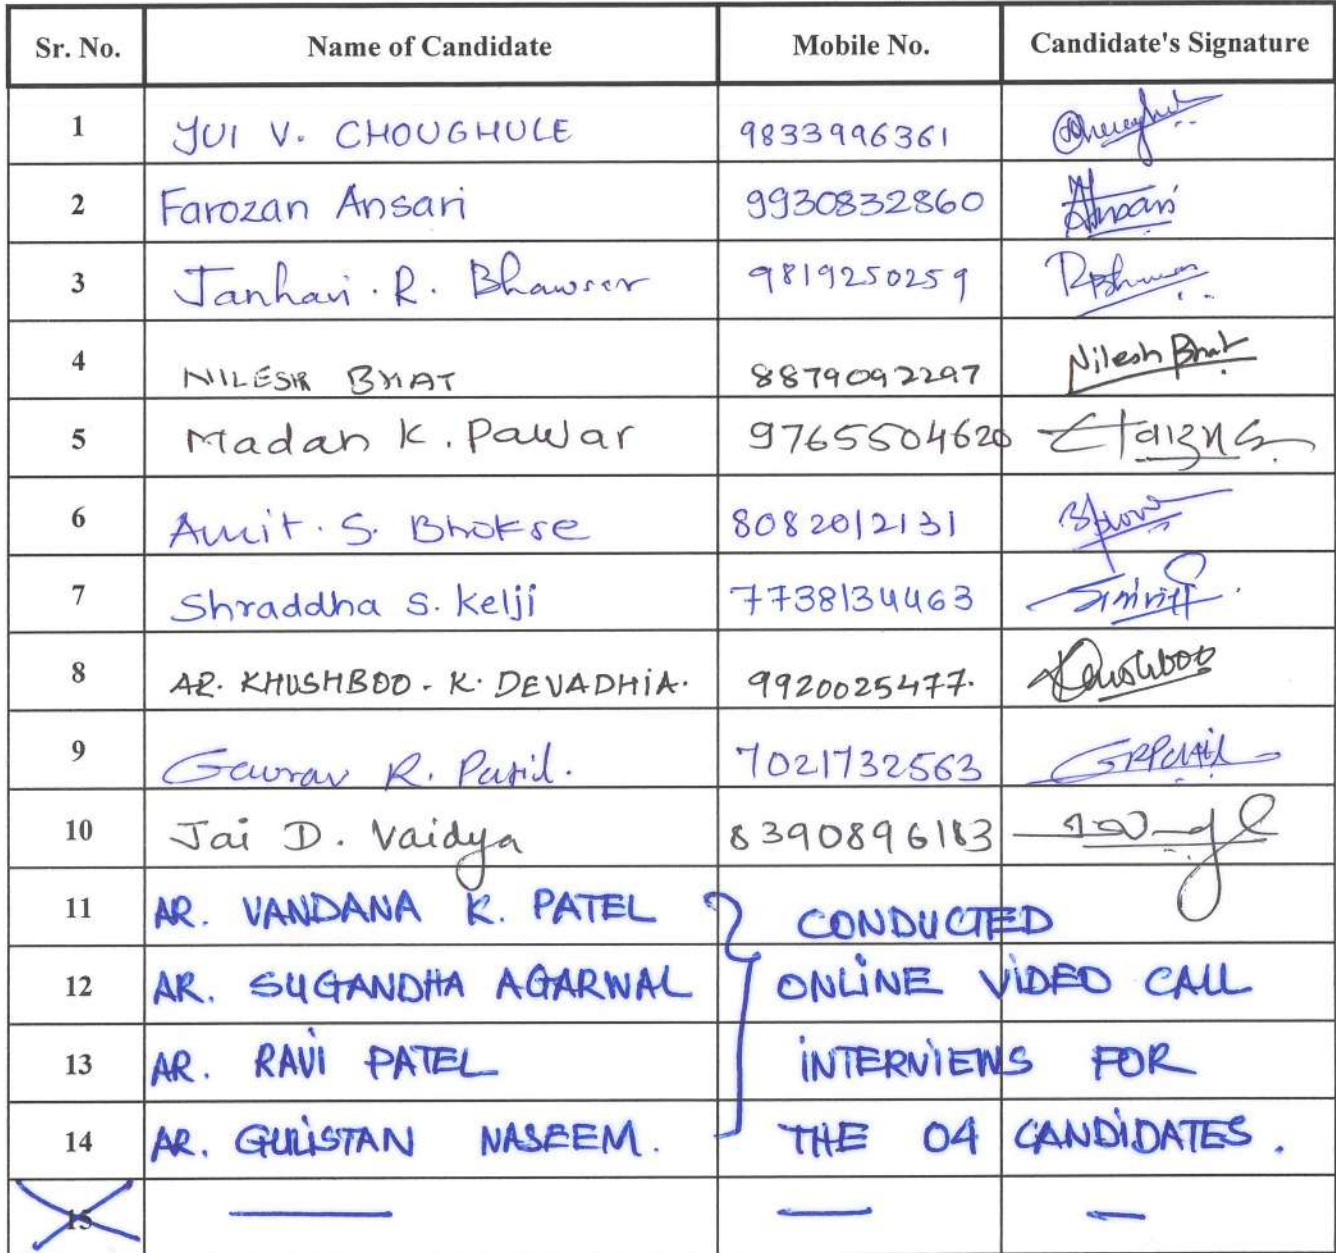 Sr. No. Name of Candidate Mobile No. Candidate's Signature
1 JUI V. CHOUGHULE 9833996361
2 Farozan Ansari 9930832860 Ansari
3 Janhavi. R. Bhawsar 9819250259
4 NILESH BHAT 8879092297 Nilesh Bhat
5 Madan K. Pawar 9765504620
6 Amit. S. Bhokse 8082012131
7 Shraddha S. Kelji 7738134463
8 AR. KHUSHBOO. K. DEVADHIA. 9920025477. Khushboo
9 Gaurav R. Patil. 7021732563 GRPatil
10 Jai D. Vaidya 8390896183
11 AR. VANDANA K. PATEL CONDUCTED
12 AR. SUGANDHA AGARWAL ONLINE VIDEO CALL
13 AR. RAVI PATEL INTERVIEWS FOR
14 AR. GULISTAN NASEEM. THE 04 CANDIDATES.
15 — — —